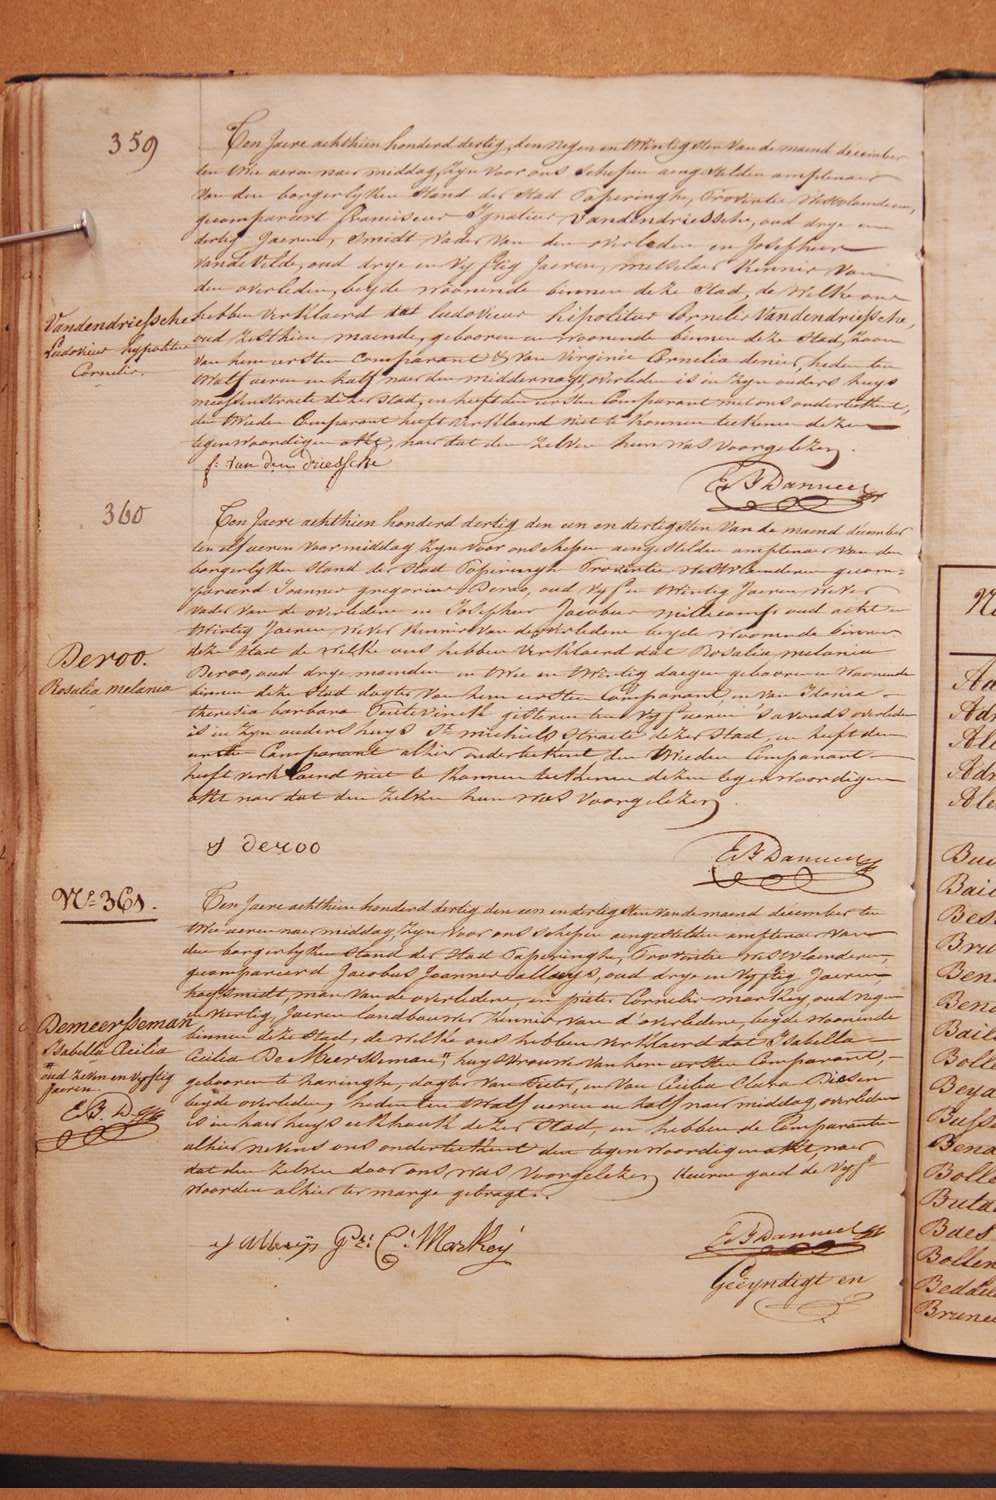 359
Ten Jaere achthien honderd dertig, den negen en twintigsten van de maend december
ten twee ueren naer middag, zyn voor ons schepen aengestelden amptenaer
van den borgerlyken stand der stad Poperinghe, Provintie Westvlaenderen,
gecompareert Franciscus Ignatius Vandendriessche, oud drye en
dertig Jaeren, Smidt vader van den overleden en Josephus
Vandevelde, oud drye en vyftig Jaeren, metselaer kennis van
den overleden, beyde woonende binnen deze stad, de welke ons
Vandendriessche
Ludovicus hypolitus
Cornelis.
hebben verklaerd dat Ludovicus hipolitus Cornelis Vandendriessche,
oud zesthien maenden, gebooren en woonende binnen deze stad, zoon
van hem eersten Comparant & van Virginie Cornelia denier, heden ten
twalf ueren en half naer den middernagt, overleden is in zyn ouders huys
straete dezer stad, en heeft den eersten Comparant met ons onderteekent,
den tweeden Comparant heeft verklaerd niet te konnen teekenen dezen
tegenwoordigen akt, naer dat den zelven hun was voorgelezen.
f: van den driessche
E B Danneel
360
Ten Jaere achthien honderd dertig den een en dertigsten van de maend december
ten elf ueren voor middag zyn voor ons schepen aengestelden amptenaer van den
borgerlyken stand der stad Poperinghe Provintie Westvlaenderen gecom=
pareerd Joannes gregorius Deroo, oud vyf en twintig Jaeren wever
vader van de overledene en Josephus Jacobus Millecamps oud acht en
twintig Jaeren wever kennis van de overledene beyde woonende binnen
Deroo.
Rosalia melania
deze stad de welke ons hebben verklaerd dat Rosalia melania
Deroo, oud drye maenden en twee en twintig daegen gebooren en woonende
binnen deze stad dogter van hem eersten Comparant, en van Idonia
theresia barbara gisteren ten vyf ueren 's avonds overleden
is in zyn ouders huys St michiels straete dezer stad, en heeft den
eersten Comparant alhier onderteekent den tweeden Comparant
heeft verklaerd niet te konnen teekenen dezen tegenwoordigen
akt naer dat den zelven hun was voorgelezen.
J deroo
E B Danneel
No 361.
Ten Jaere achthien honderd dertig den een en dertigsten van de maend december ten
twee ueren naer middag, zyn voor ons schepen aengestelden amptenaer van
den borgerlyken stand der stad Poperinghe, Provintie Westvlaenderen,
gecompareerd Jacobus Joannes allaeys, oud drye en vyftig Jaeren,
hoefsmidt, man van de overledene, en pieter Cornelis markey, oud negen
en veertig Jaeren landbouwer kennis van d'overledene, beyde woonende
Demeersseman
Isabella Cecilia
" oud zeven en vyftig
Jaeren
E B D
binnen deze stad, de welke ons hebben verklaerd dat Isabella
Cecilia De Meersseman ", huysvrouwe van hem eersten Comparant,
gebooren te haringhe, dogter van Pieter, en van Cecilia Clara
beyde overleden, heden ten twalf ueren en half naer middag, overleden
is in haer huys eekhoek dezer stad, en hebben de Comparanten
alhier nevens ons onderteekent den tegenwoordigen akt, naer
dat den zelken door ons, was voorgelezen keuren goed de vyf
woorden alhier ter marge gebragt.
J allaeys Pr: C: Markey
E B Danneel
Geëyndigt en
N
Aa
Adr
Ale
Adr
Ale
Bu
Bail
Bes
Bru
Ben
Bena
Bail
Bolle
Beya
Buss
Bena
Bolle
Buta
Baes
Bollen
Bedde
Brune